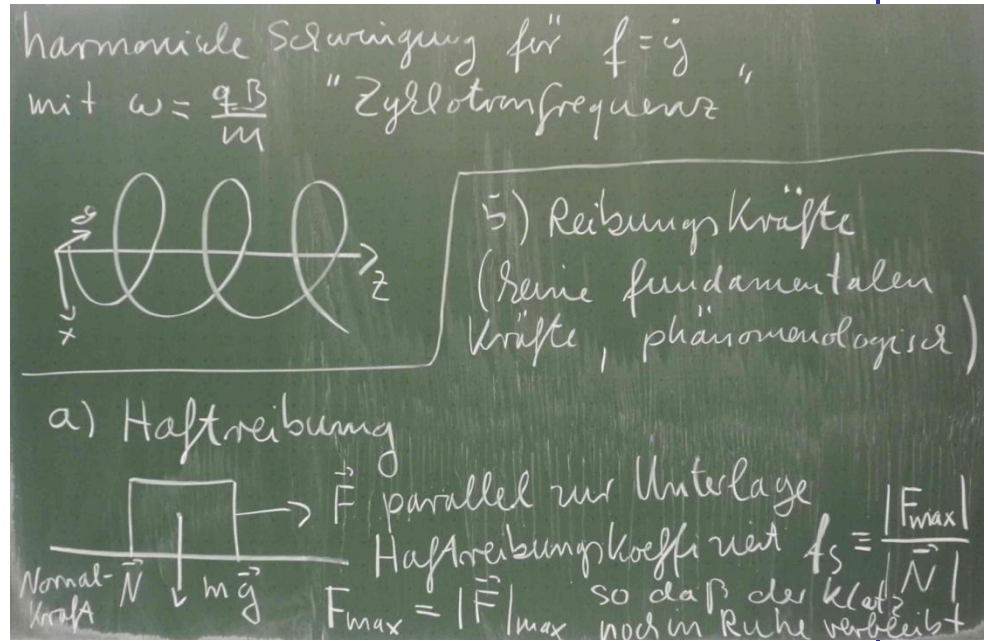 harmonische Schwingung für f = ẏ
mit ω = qB/m "Zyklotronfrequenz"
y
x
z
5) Reibungskräfte
(keine fundamentalen
Kräfte, phänomenologisch)
a) Haftreibung
F⃗ parallel zur Unterlage
Haftreibungskoeffizient f_s ≡ |F_max| / |N⃗|
Normal-
kraft
N⃗
m g⃗
F_max = |F⃗|_max so daß der Klotz
noch in Ruhe verbleibt